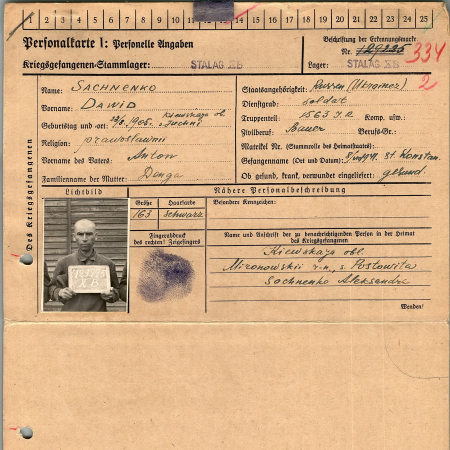 1 2 3 4 5 6 7 8 9 10 11 12 13 14 15 16 17 18 19 20 21 22 23 24 25
Personalkarte I: Personelle Angaben
Kriegsgefangenen-Stammlager: STALAG XB
Beschriftung der Erkennungsmarke
Nr. 129225 334
Lager: STALAG XB 2
Des Kriegsgefangenen
Name: SACHNENKO
Vorname: DAWID
Geburtstag und -ort: 1905. Kiewskaja ob.
Religion: prawoslawni
Vorname des Vaters: Anton
Familienname der Mutter: Denga
Staatsangehörigkeit: Russen (Ukrainer)
Dienstgrad: Soldat
Truppenteil: 1563 Komp. usw.:
Zivilberuf: Bauer Berufs-Gr.:
Matrikel Nr. (Stammrolle des Heimatstaates):
Gefangennahme (Ort und Datum): st. Konstan.
Ob gesund, krank, verwundet eingeliefert: gesund.
Lichtbild
Nähere Personalbeschreibung
Größe Haarfarbe Besondere Kennzeichen:
163 schwarz
Fingerabdruck
des rechten! Zeigefingers
Name und Anschrift der zu benachrichtigenden Person in der Heimat
des Kriegsgefangenen
Kiewskaja obl.
Mironowskii r-n, s. Postowita
Sachnenko Aleksandra
Wenden!
X B